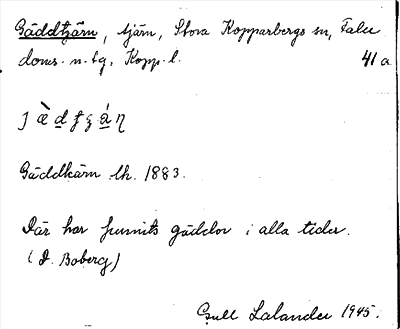 Gäddtjärn, tjärn, Stora Kopparbergs sn, Falu
doms. n. tg, Kopp. l. 41 a
Gäddkärn lk. 1883.
Där har funnits gäddor i alla tider.
(I. Boberg)
Gull Lalander 1945.